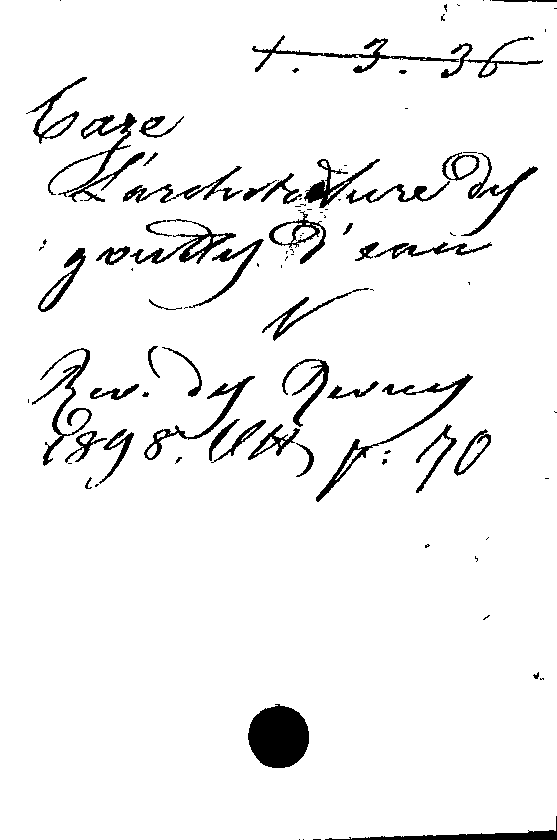 1. 3. 36
Caze
L'architecture des
gouttes d'eau
V
Rev. des Revues
1898. p: 70